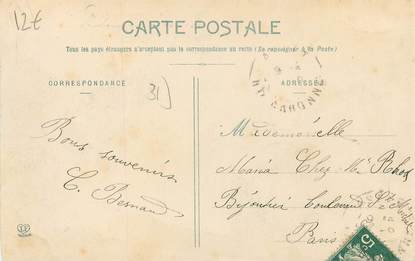 12€
CARTE POSTALE
Tous les pays étrangers n'acceptent pas la correspondance au recto (Se renseigner à la Poste)
CORRESPONDANCE
ADRESSE
31
Bons souvenirs
C. Bernard
Mademoiselle
Maria Chez Mr
Bijoutier Boulevard St
Paris
HTE GARONNE
5